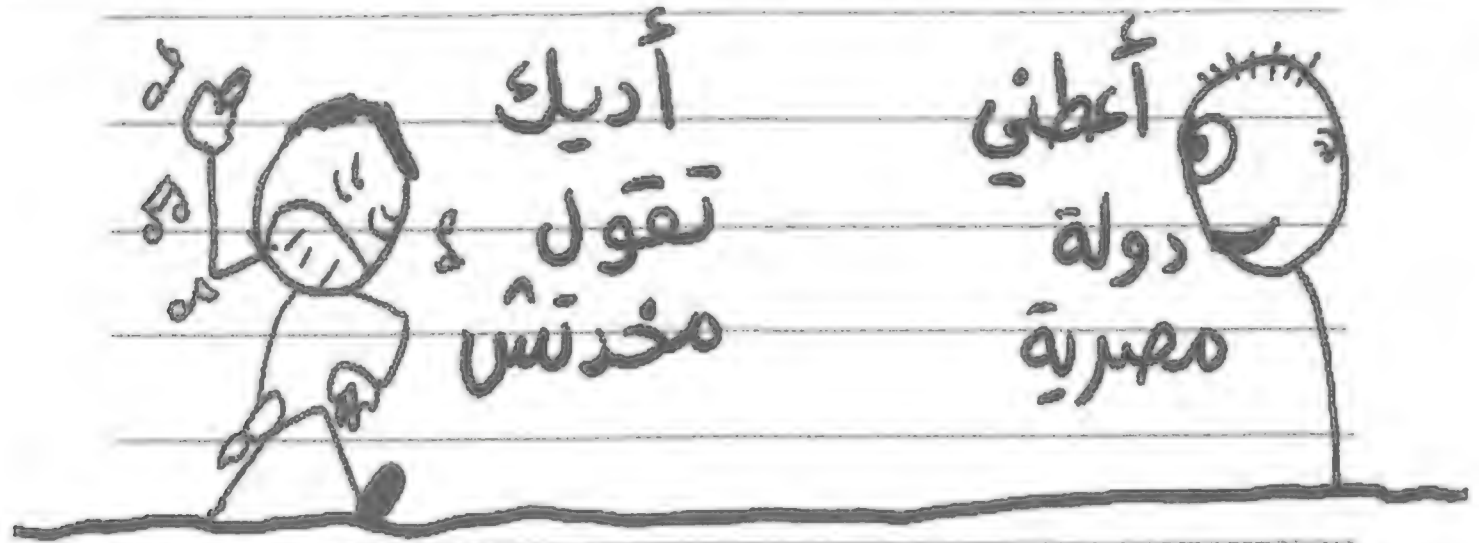 أعطني
دولة
مصرية
أديك
تقول
مخدتش